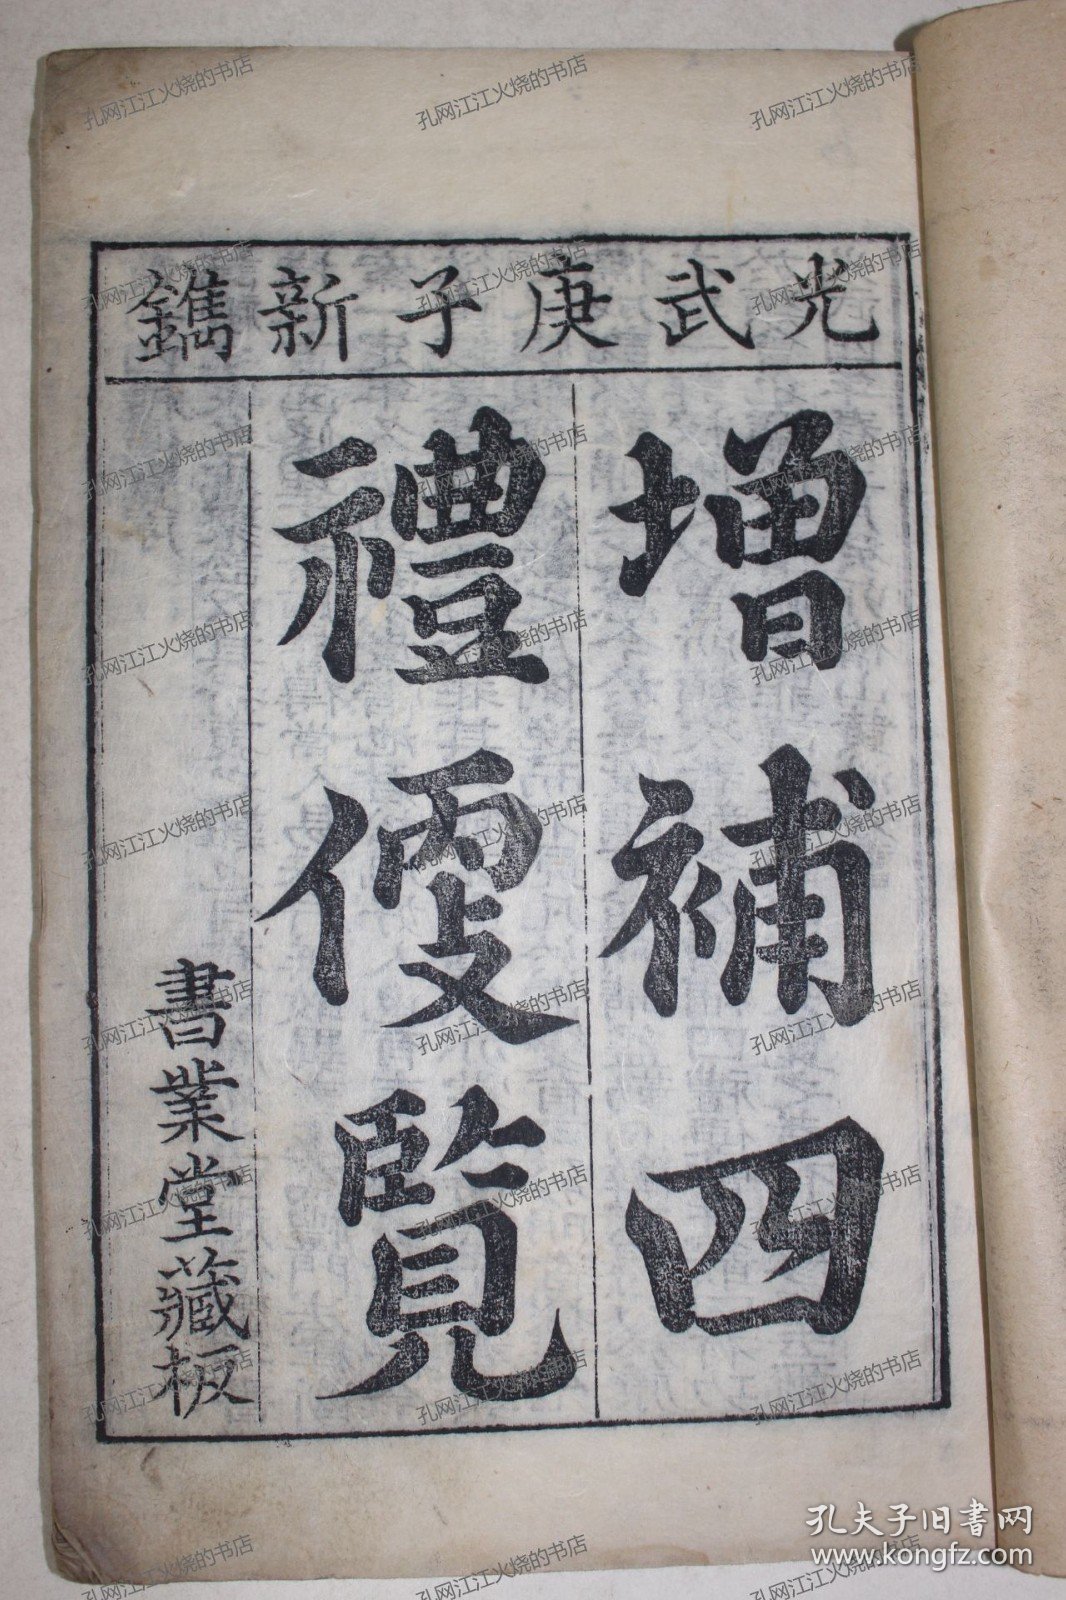 光武庚子新鐫
增補四
禮便覽
書業堂藏板
孔网江江火烧的书店
孔夫子旧书网
www.kongfz.com